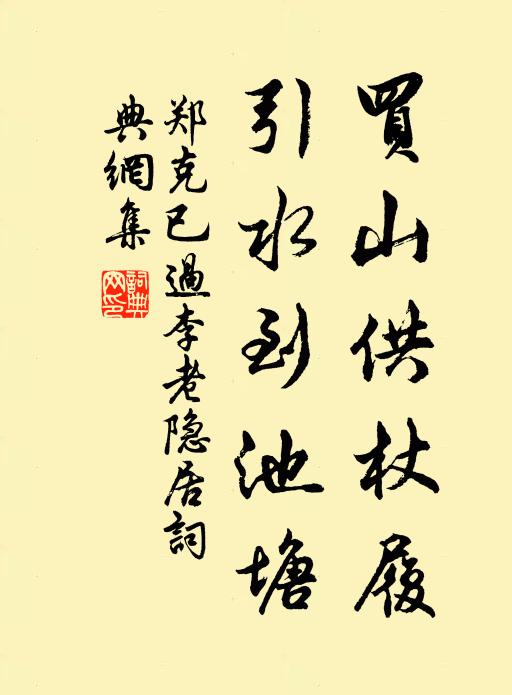 買山供杖履
引水到池塘
郑克己過李老隐居詞
典網集
詞典
网印